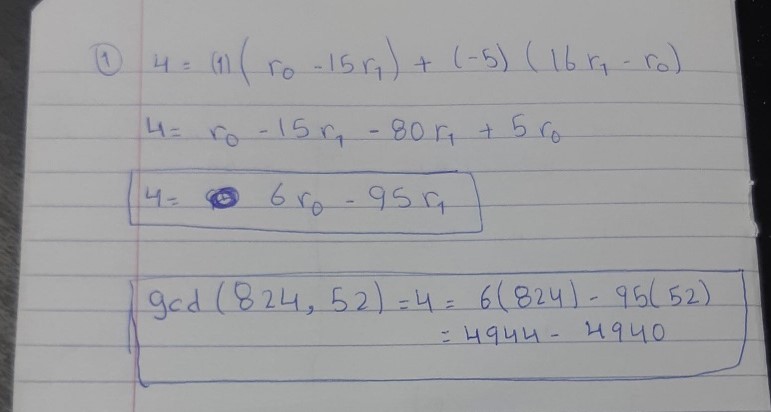 ① 4 = (1) ( r₀ - 15 r₁ ) + (-5) ( 16 r₁ - r₀ )
4 = r₀ - 15 r₁ - 80 r₁ + 5 r₀
4 = 6 r₀ - 95 r₁
gcd ( 824, 52 ) = 4 = 6(824) - 95(52)
= 4944 - 4940